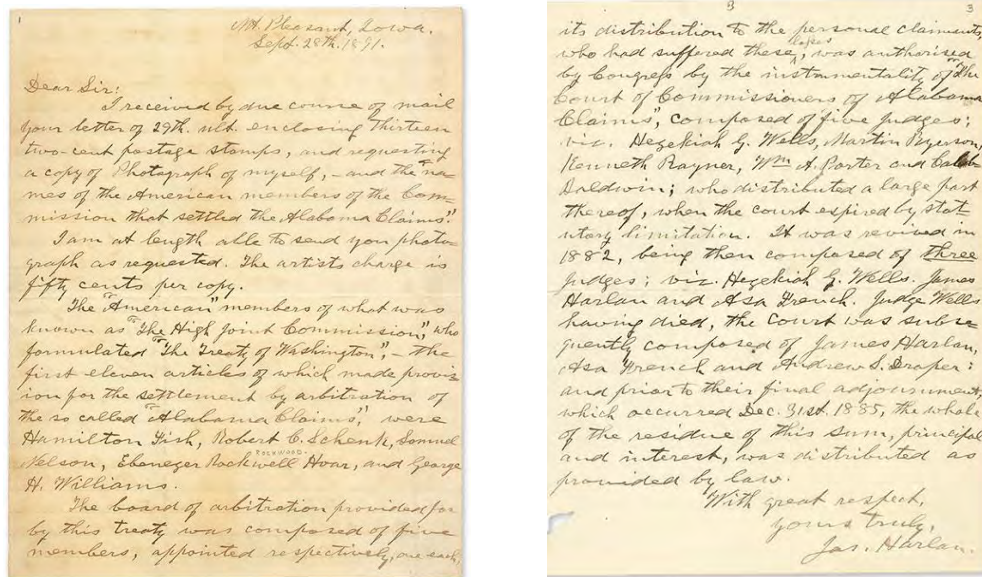 1
Mt. Pleasant, Iowa.
Sept. 28th. 1891.
Dear Sir:
I received by due course of mail
your letter of 29th. ult. enclosing thirteen
two-cent postage stamps, and requesting
a copy of Photograph of myself,—and the "na-
mes of the American members of the Com-
mission that settled the Alabama Claims."
I am at length able to send you photo-
graph as requested. The artists charge is
fifty cents per copy.
The "American" members of what was
known as "The High Joint Commission," who
formulated "The Treaty of Washington",— the
first eleven articles of which made provis-
ion for the settlement by arbitration of
the so called "Alabama Claims", were
Hamilton Fish, Robert C. Schenk, Samuel
Nelson, Ebenezer Rockwell Hoar, and George
ROCKWOOD-
H. Williams.
The board of arbitration provided for
by this treaty was composed of five
members, appointed respectively, one each,
3
3
its distribution to the personal claimants,
who had suffered these losses, was authorised
by Congress by the instrumentality of "The
Court of Commissioners of Alabama
Claims", composed of five judges;
viz. Hezekiah G. Wells, Martin Ryerson,
Kenneth Rayner, Wm A. Porter and Caleb
Baldwin; who distributed a large part
thereof, when the court expired by stat-
utory limitation. It was revived in
1882, being then composed of three
judges; viz. Hezekiah G. Wells. James
Harlan and Asa French. Judge Wells
having died, the Court was subse-
quently composed of James Harlan,
Asa French and Andrew S. Draper:
and prior to their final adjournment,
which occurred Dec. 31st. 1885, the whole
of the residue of this sum, principal
and interest, was distributed as
provided by law.
With great respect,
yours truly,
Jas. Harlan.